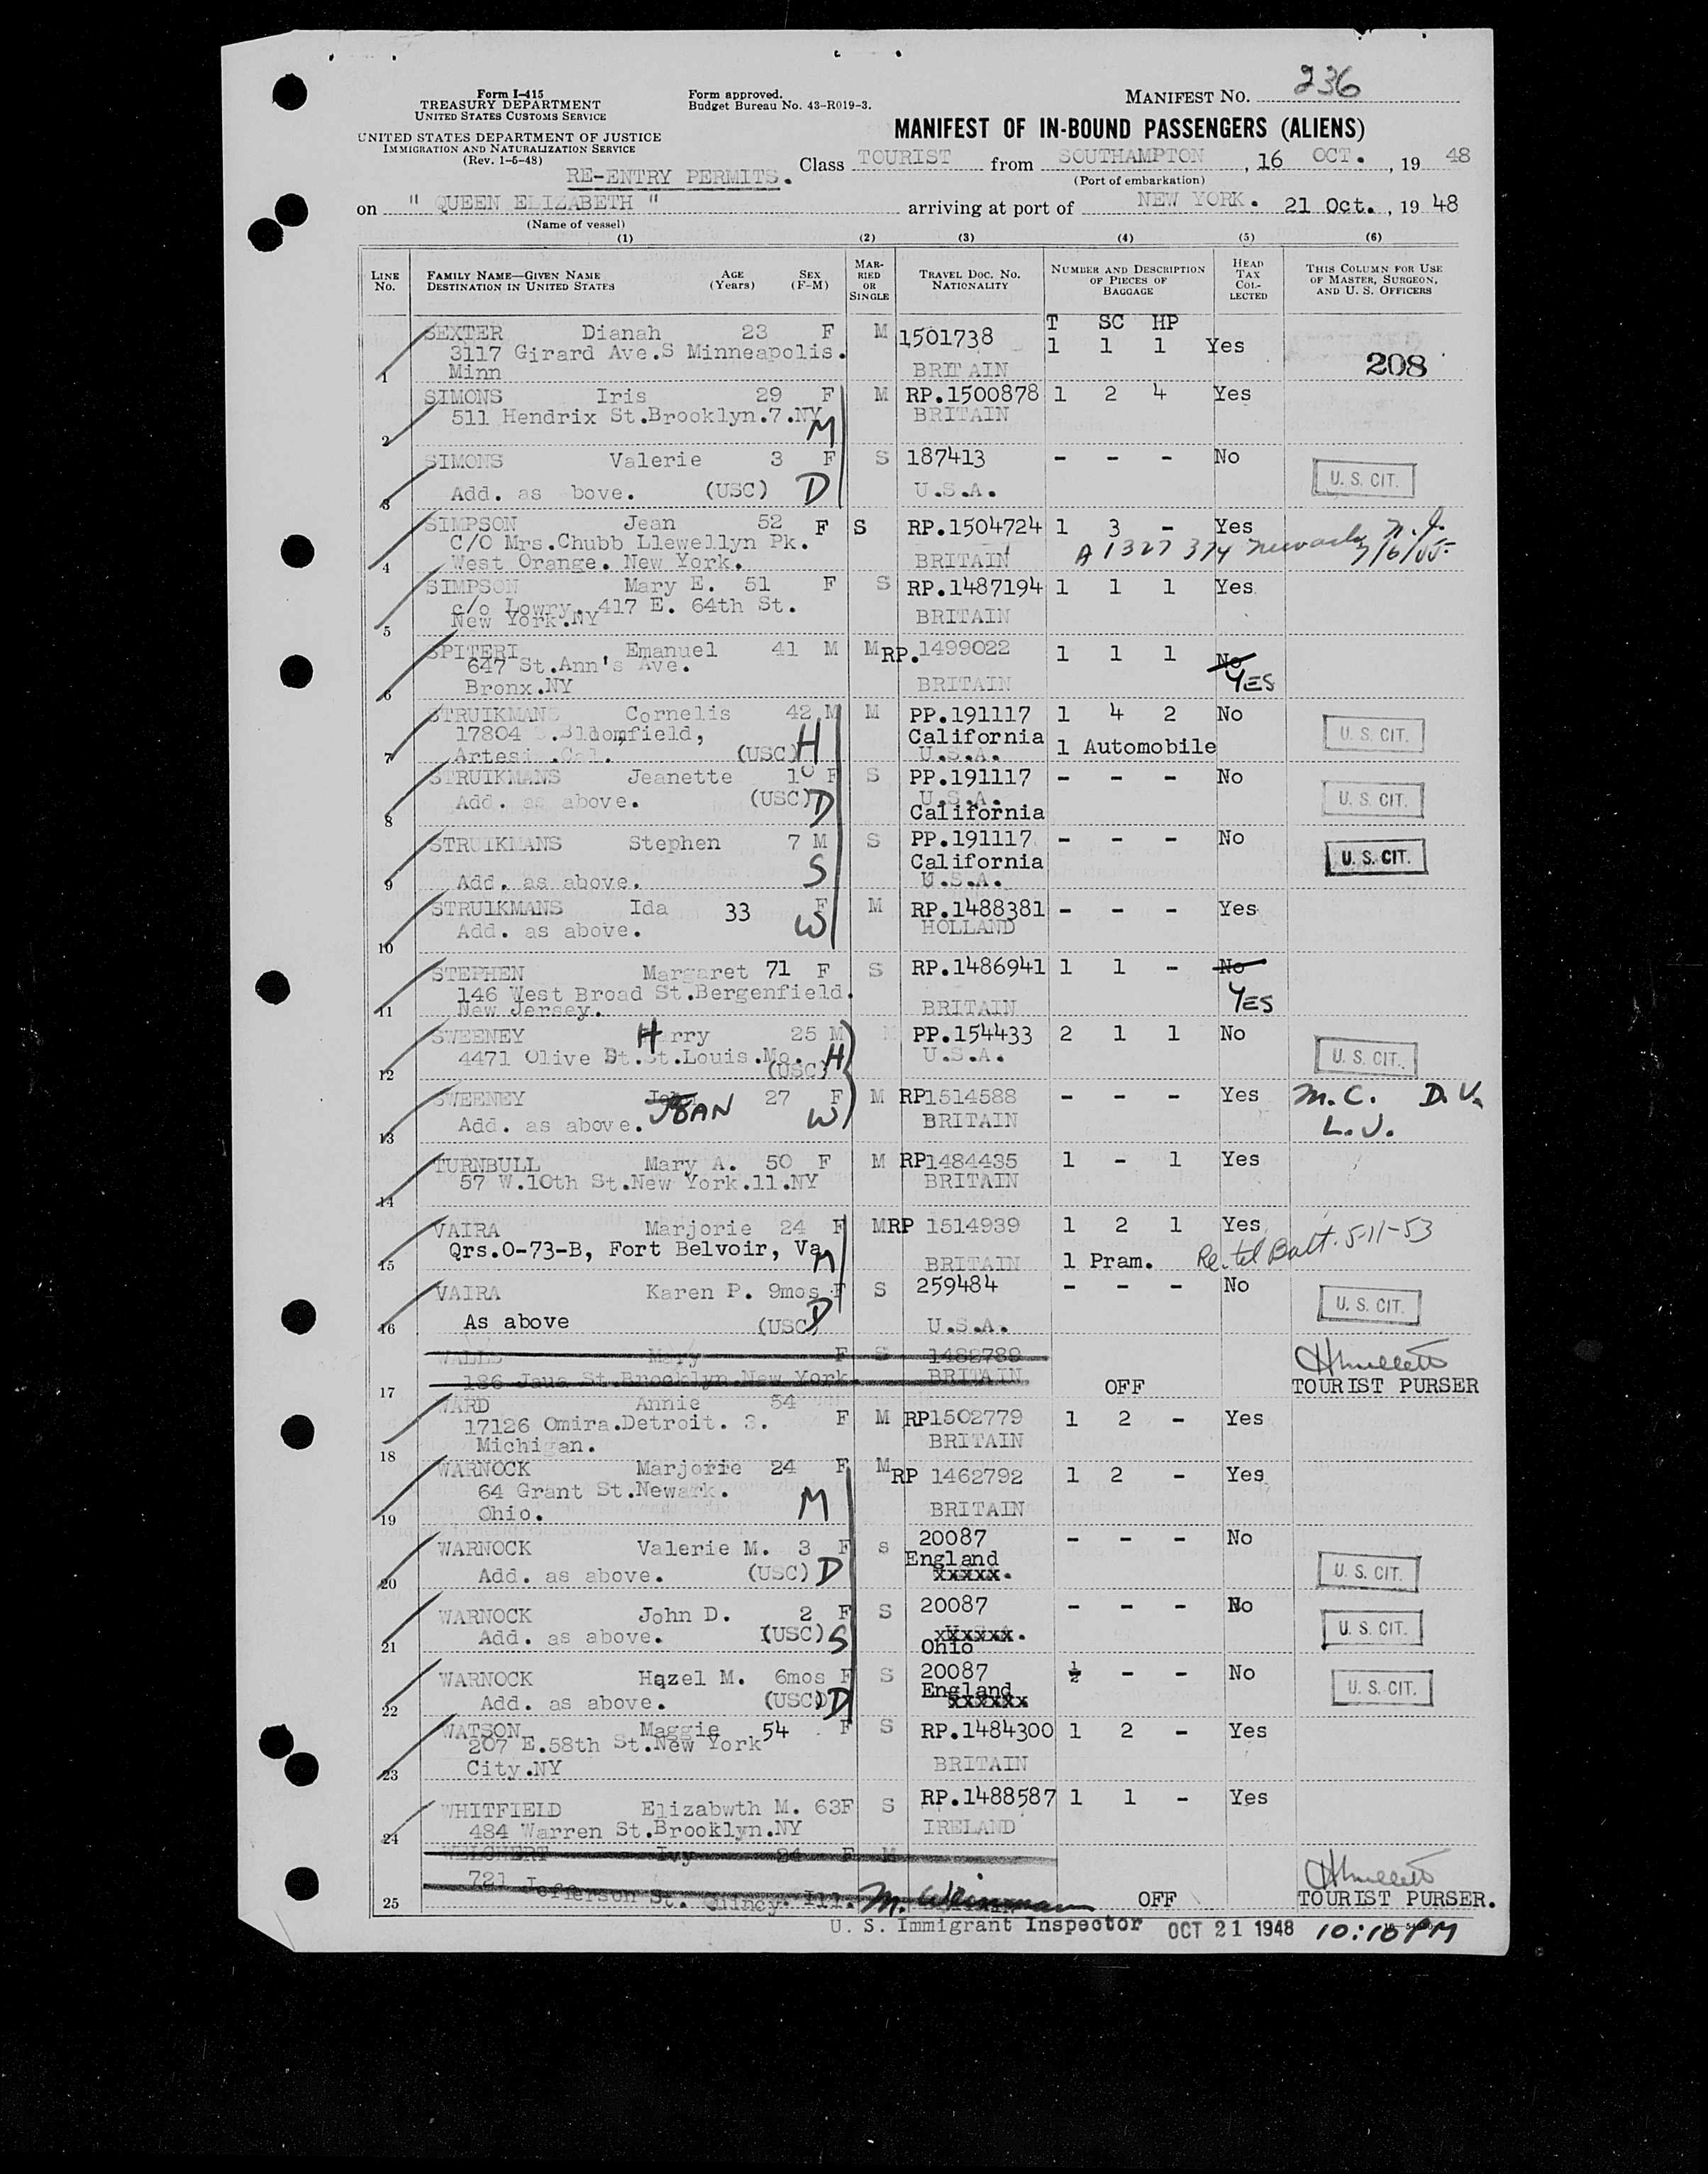 Form I-415
TREASURY DEPARTMENT
UNITED STATES CUSTOMS SERVICE
UNITED STATES DEPARTMENT OF JUSTICE
IMMIGRATION AND NATURALIZATION SERVICE
(Rev. 1-5-48)
Form approved.
Budget Bureau No. 43-R019-3.
MANIFEST NO. 236
MANIFEST OF IN-BOUND PASSENGERS (ALIENS)
RE-ENTRY PERMITS.
Class TOURIST from SOUTHAMPTON, 16 OCT., 19 48
(Port of embarkation)
on " QUEEN ELIZABETH " arriving at port of NEW YORK. 21 Oct., 19 48
(Name of vessel)
(1) (2) (3) (4) (5) (6)
LINE NO. FAMILY NAME—GIVEN NAME DESTINATION IN UNITED STATES AGE (Years) SEX (F-M) MARRIED OR SINGLE TRAVEL DOC. NO. NATIONALITY NUMBER AND DESCRIPTION OF PIECES OF BAGGAGE HEAD TAX COLLECTED THIS COLUMN FOR USE OF MASTER, SURGEON, AND U. S. OFFICERS
T SC HP
SEXTER Dianah 23 F M 1501738 1 1 1 Yes
3117 Girard Ave.S Minneapolis.
1 Minn BRITAIN 208
SIMONS Iris 29 F M RP.1500878 1 2 4 Yes
511 Hendrix St.Brooklyn.7.NY BRITAIN
2 M
SIMONS Valerie 3 F S 187413 - - - No
3 Add. as bove. (USC) D U.S.A. U. S. CIT.
SIMPSON Jean 52 F S RP.1504724 1 3 - Yes
C/O Mrs.Chubb Llewellyn Pk. A1327374 Newark, N.J.
4 West Orange. New York. BRITAIN
SIMPSON Mary E. 51 F S RP.1487194 1 1 1 Yes
c/o Lowry. 417 E. 64th St.
5 New York.NY BRITAIN
SPITERI Emanuel 41 M M RP.1499022 1 1 1 No YES
647 St.Ann's Ave.
6 Bronx.NY BRITAIN
STRUIKMANS Cornelis 42 M M PP.191117 1 4 2 No
17804 .Bloomfield, California U. S. CIT.
7 Artesi .Cal. (USC) H U.S.A. 1 Automobile
STRUIKMANS Jeanette 10 F S PP.191117 - - - No
Add. as above. (USC) D U.S.A. U. S. CIT.
8 California
STRUIKMANS Stephen 7 M S PP.191117 - - - No
California U. S. CIT.
9 Add. as above. S U.S.A.
STRUIKMANS Ida 33 F M RP.1488381 - - - Yes
Add. as above. W HOLLAND
10
STEPHEN Margaret 71 F S RP.1486941 1 1 - No YES
146 West Broad St.Bergenfield.
11 New Jersey. BRITAIN
SWEENEY Harry 25 M PP.154433 2 1 1 No
4471 Olive St.St.Louis.Mo. H U.S.A. U. S. CIT.
12 (USC)
SWEENEY JOAN 27 F M RP1514588 - - - Yes M.C. D.V.
13 Add. as above. W BRITAIN L.J.
TURNBULL Mary A. 50 F M RP1484435 1 - 1 Yes
57 W.10th St.New York.11.NY BRITAIN
14
VAIRA Marjorie 24 F M RP 1514939 1 2 1 Yes
15 Qrs.O-73-B, Fort Belvoir, Va M BRITAIN 1 Pram. Re.tel Balt. 5-11-53
VAIRA Karen P. 9mos F S 259484 - - - No
16 As above (USC) D U.S.A. U. S. CIT.
WALLS Mary F S 1482789
186 Java St.Brooklyn.New York. BRITAIN
17 OFF TOURIST PURSER
WARD Annie 54 F M RP1502779 1 2 - Yes
17126 Omira.Detroit. 3.
18 Michigan. BRITAIN
WARNOCK Marjorie 24 F M RP 1462792 1 2 - Yes
64 Grant St.Newark.
19 Ohio. M BRITAIN
WARNOCK Valerie M. 3 F S 20087 - - - No
England
20 Add. as above. (USC) D xxxxx. U. S. CIT.
WARNOCK John D. 2 F S 20087 - - - No
21 Add. as above. (USC) S xxxxxx. Ohio U. S. CIT.
WARNOCK Hazel M. 6mos F S 20087 ½ - - No
England
22 Add. as above. (USC) D xxxxxx U. S. CIT.
WATSON Maggie 54 F S RP.1484300 1 2 - Yes
207 E.58th St.New York
23 City.NY BRITAIN
WHITFIELD Elizabwth M. 63F S RP.1488587 1 1 - Yes
24 484 Warren St.Brooklyn.NY IRELAND
WEICHERT Ivy 24 F M
25 721 Jefferson St. Quincy. Ill. OFF TOURIST PURSER.
M. Weinman
U. S. Immigrant Inspector OCT 21 1948 10:10 PM